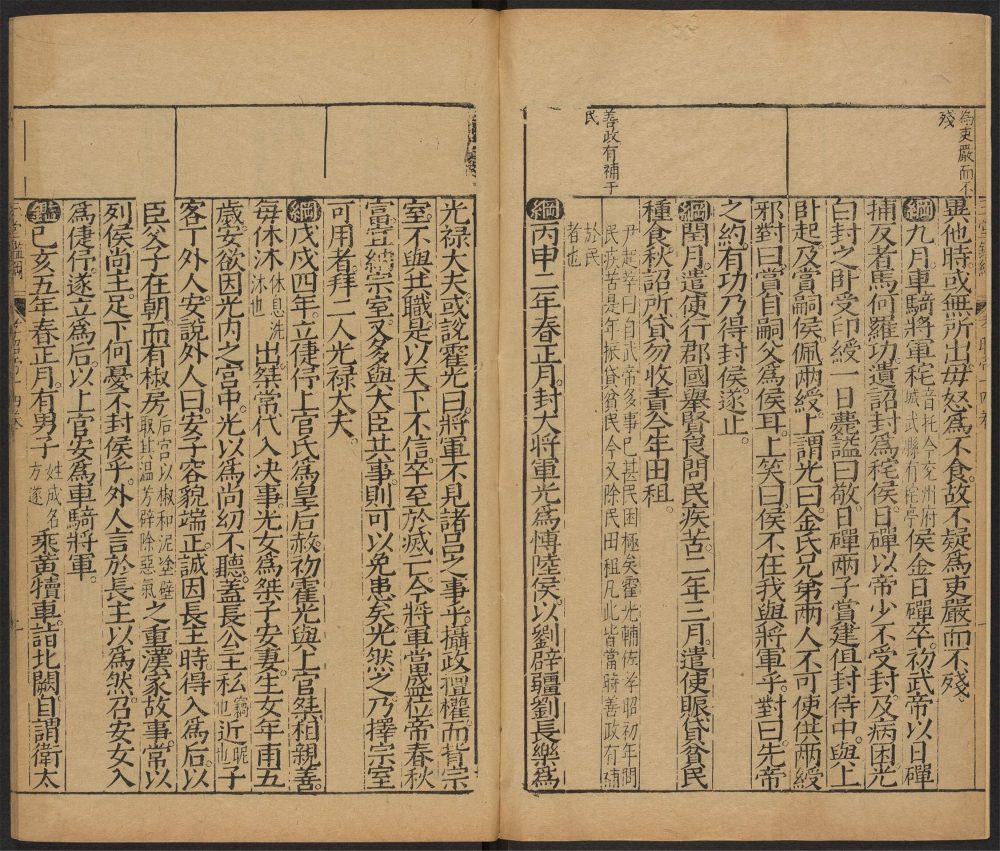 爲吏嚴而不
殘
善政有補于
民
異他時或無所出毋怒爲不食故不疑爲吏嚴而不殘
綱九月車騎將軍秺音托今兗州府城武縣有秺亭侯金日磾卒初武帝以日磾
捕反者馬何羅功遺詔封爲秺侯日磾以帝少不受封及病困光
白封之卧受印綬一日薨謚曰敬日磾兩子賞建俱封侍中與上
卧起及賞嗣侯佩兩綬上謂光曰金氏兄弟兩人不可使俱兩綬
邪對曰賞自嗣父爲侯耳上笑曰侯不在我與將軍乎對曰先帝
之約有功乃得封侯遂止
綱閏月遣使行郡國舉賢良問民疾苦二年三月遣使賑貸貧民
種食秋詔所貸勿收責今年田租
尹起莘曰自武帝多事已甚民困極矣霍光輔佐孝昭初年問
民疾苦是年振貸貧民今又除民田租凡此皆當時善政有補
於民
者也
綱丙申二年春正月封大將軍光爲博陸侯以劉辟彊劉長樂爲
光祿大夫或說霍光曰將軍不見諸呂之事乎攝政擅權而背宗
室不與共職是以天下不信卒至於滅亡今將軍當盛位帝春秋
富宜納宗室又多與大臣共事則可以免患矣光然之乃擇宗室
可用者拜二人光祿大夫
綱戊戌四年立倢伃上官氏爲皇后赦初霍光與上官桀相親善
每休沐休息洗沐也出桀常代入决事光女爲桀子安妻生女年甫五
歲安欲因光內之宮中光以爲尚幼不聽蓋長公主私竊也近昵也子
客丁外人安說外人曰安子容貌端正誠因長主時得入爲后以
臣父子在朝而有椒房后宮以椒和泥塗壁取其温芳辟除惡氣之重漢家故事常以
列侯尚主足下何憂不封侯乎外人言於長主以爲然召安女入
爲倢伃遂立爲后以上官安爲車騎將軍
鑑己亥五年春正月有男子姓成名方遂乘黃犢車詣北闕自謂衛太